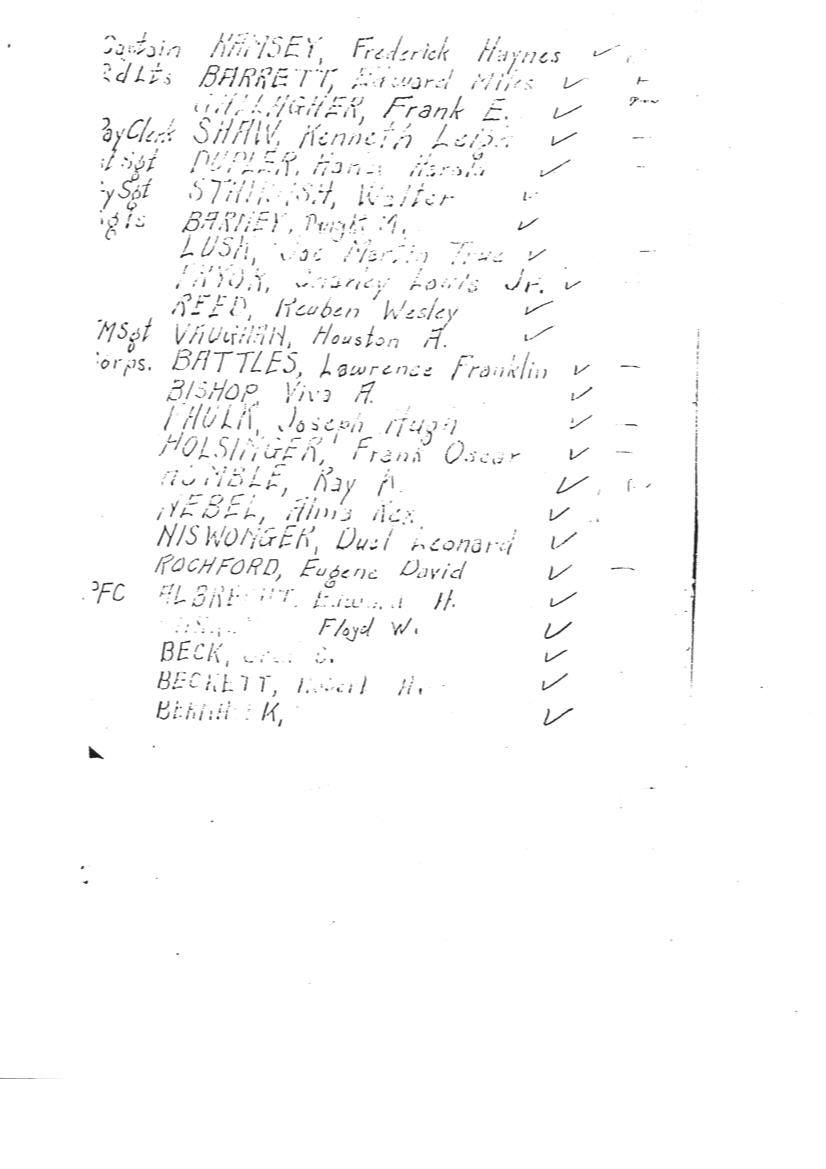 Captain RAMSEY, Frederick Haynes ✓
2d Lts BARRETT, Edward Miles ✓
GALLAGHER, Frank E. ✓
Pay Clerk SHAW, Kenneth Leigh ✓ —
Sgt DUPLER, Harold ✓ —
Sgt Walter ✓
BARNEY, Dwight M. ✓
LUSK, Joe Martin True ✓ —
PRYOR, Charley Louis Jr. ✓ —
REED, Reuben Wesley ✓
MSgt VAUGHAN, Houston A. ✓
Corps. BATTLES, Lawrence Franklin ✓ —
BISHOP, Viva A. ✓
FAULK, Joseph Hugh ✓ —
HOLSINGER, Frank Oscar ✓ —
HUMBLE, Ray A. ✓
NEBEL, Rex ✓
NISWONGER, Duel Leonard ✓
ROCHFORD, Eugene David ✓ —
PFC ALBRECHT, Edward H. ✓
Floyd W. ✓
BECK, ✓
BECKETT, Robert H. ✓
✓